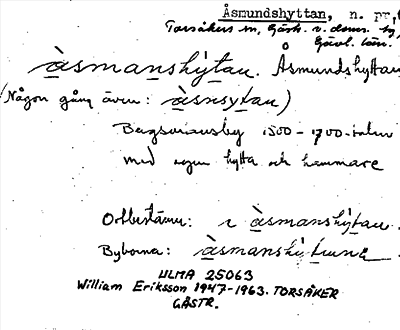 Åsmundshyttan, n. pr.,
Torsåkers sn, Gästr. ö. doms.
Gävl. län.
àsmanshýtan. Åsmundshyttan
(Någon gång även: àsnsytau)
Bergsmansby 1500-1700-talen
med egen hytta och hammare
Ortbestämn: i àsmanshýtan.
Byborna: àsmanshýtuna
ULMA 25063
William Eriksson 1947-1963. TORSÅKER
GÄSTR.